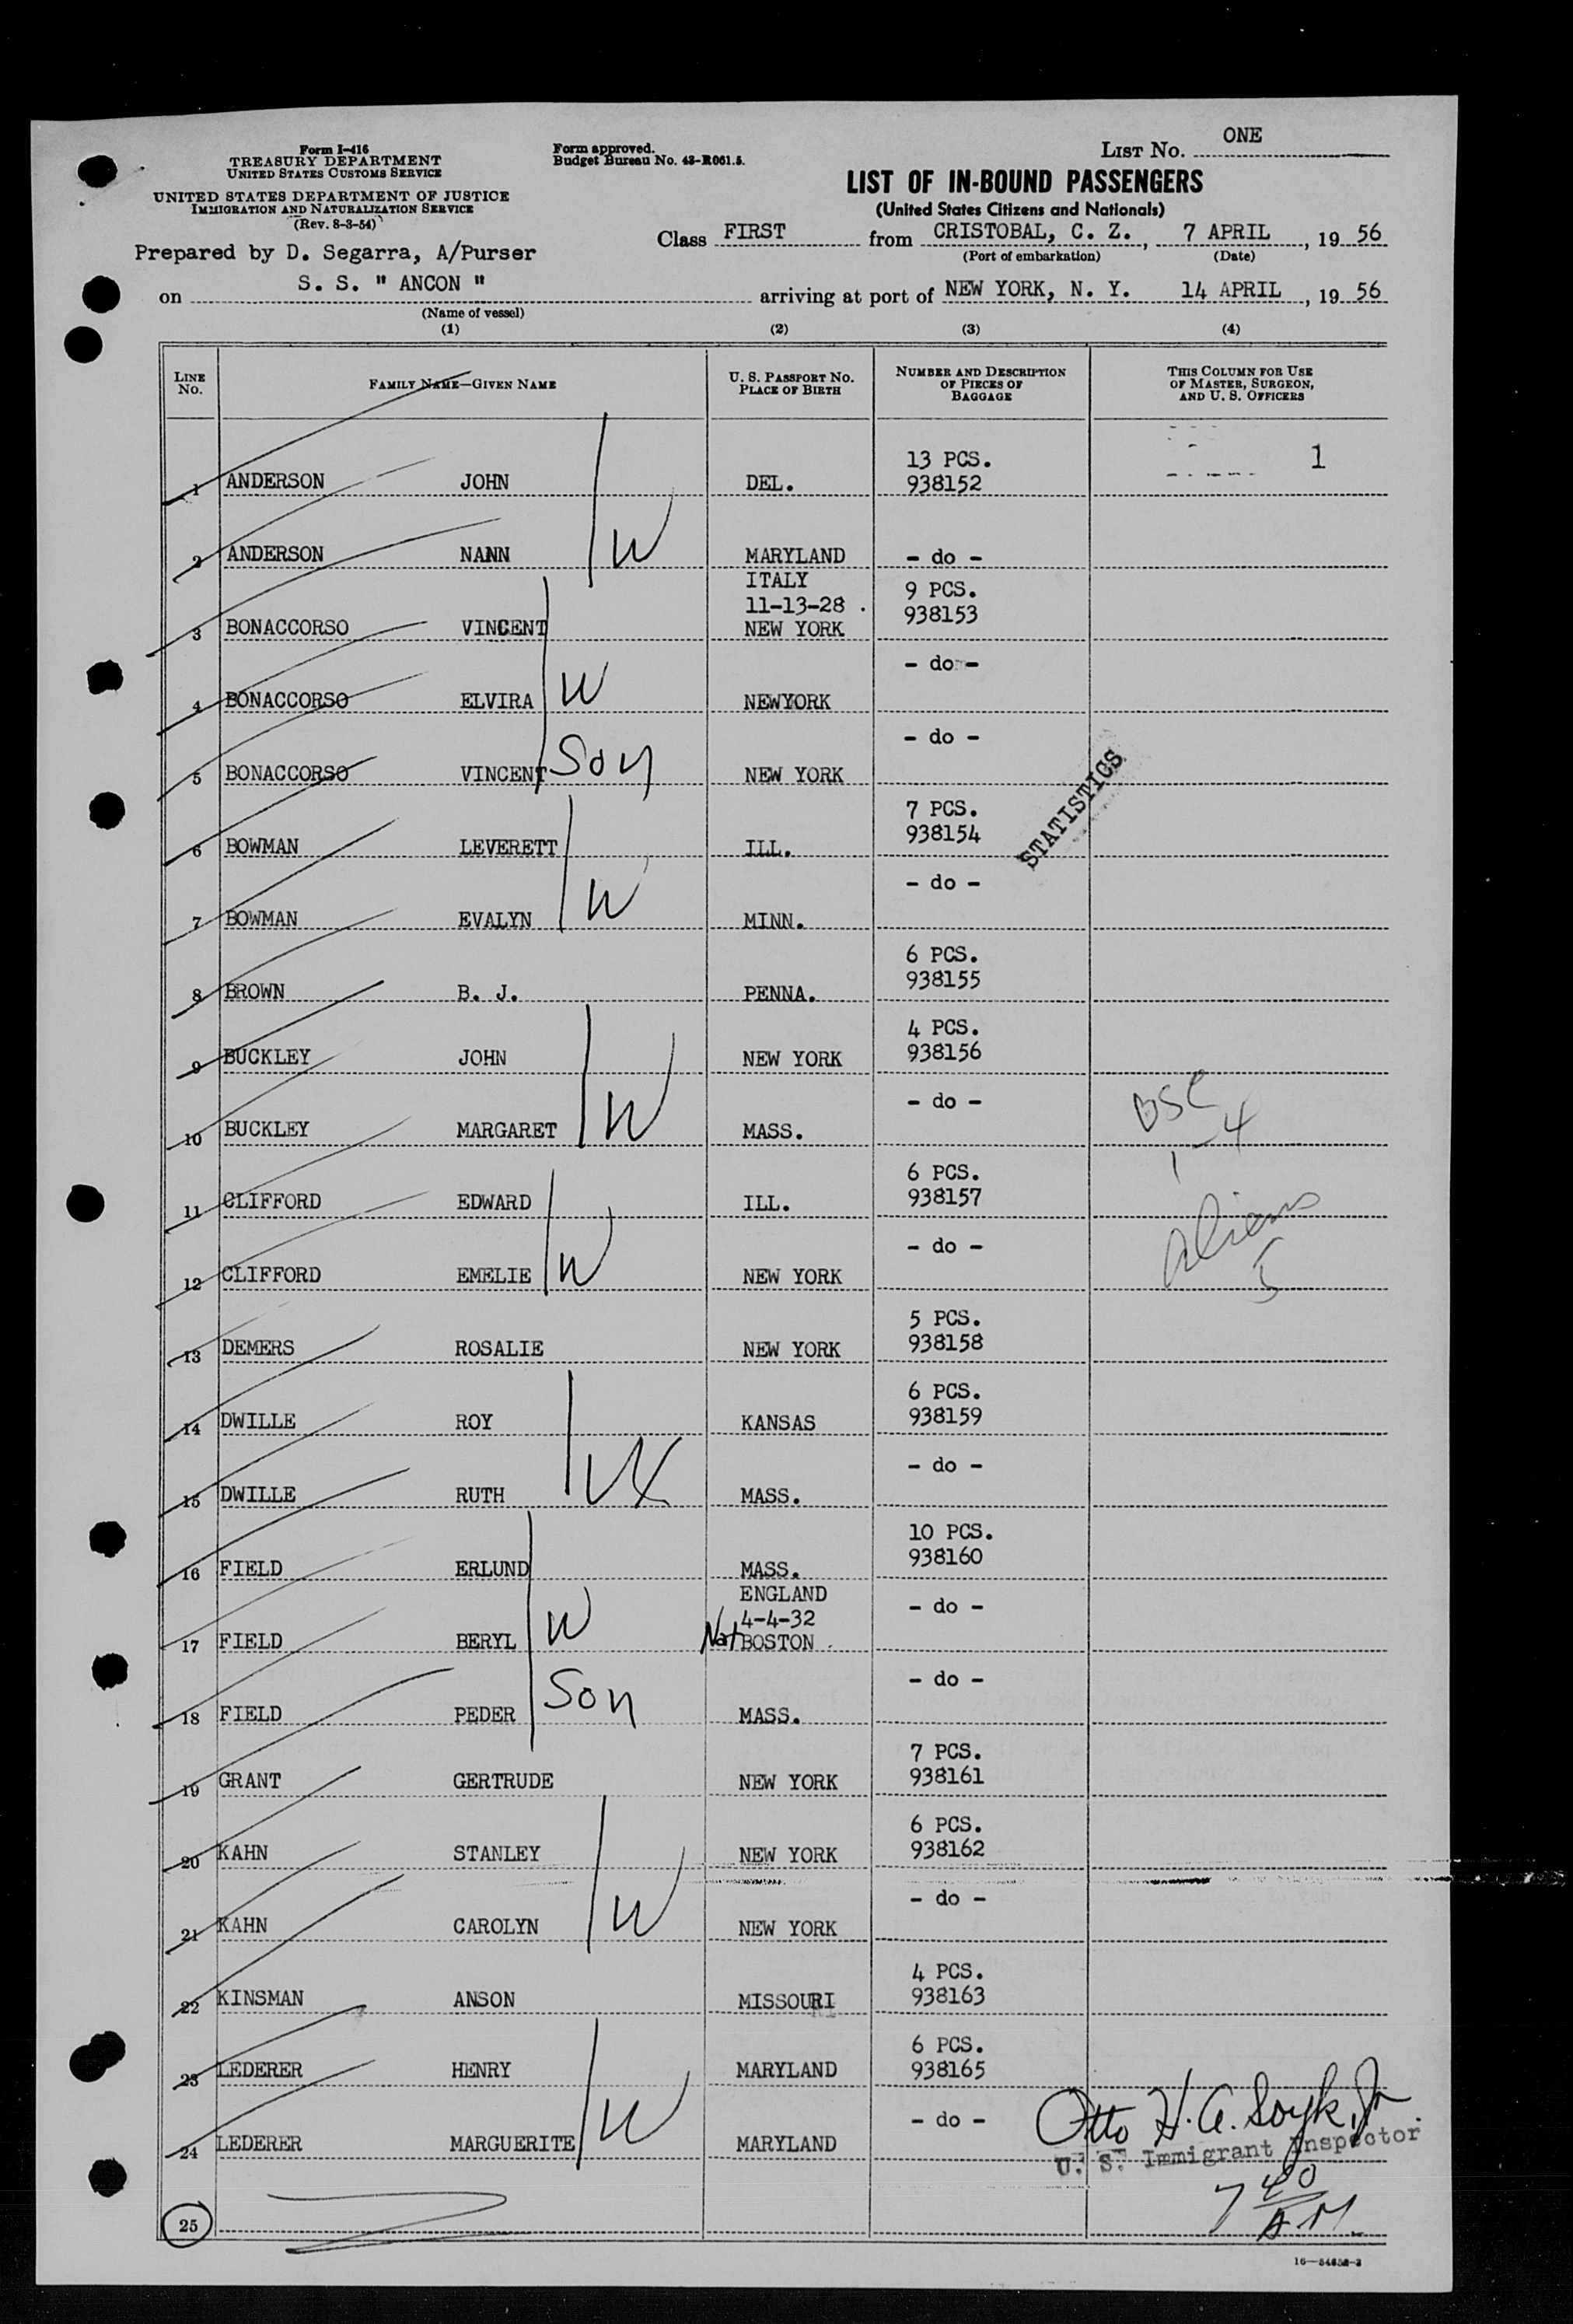 Form I-416
TREASURY DEPARTMENT
UNITED STATES CUSTOMS SERVICE
UNITED STATES DEPARTMENT OF JUSTICE
IMMIGRATION AND NATURALIZATION SERVICE
(Rev. 8-3-54)
Form approved.
Budget Bureau No. 43-R061.5.
LIST No. ONE
LIST OF IN-BOUND PASSENGERS
(United States Citizens and Nationals)
Prepared by D. Segarra, A/Purser
Class FIRST from CRISTOBAL, C. Z., 7 APRIL, 19 56
(Port of embarkation) (Date)
on S. S. " ANCON " arriving at port of NEW YORK, N. Y. 14 APRIL, 19 56
(Name of vessel)
(1) (2) (3) (4)
LINE No. FAMILY NAME—GIVEN NAME U. S. PASSPORT No. PLACE OF BIRTH NUMBER AND DESCRIPTION OF PIECES OF BAGGAGE THIS COLUMN FOR USE OF MASTER, SURGEON, AND U. S. OFFICERS
13 PCS. 1
1 ANDERSON JOHN DEL. 938152
2 ANDERSON NANN W MARYLAND - do -
ITALY
11-13-28 . 9 PCS.
3 BONACCORSO VINCENT NEW YORK 938153
4 BONACCORSO ELVIRA W NEWYORK - do -
5 BONACCORSO VINCENT Son NEW YORK - do -
STATISTICS
7 PCS.
6 BOWMAN LEVERETT ILL. 938154
7 BOWMAN EVALYN W MINN. - do -
6 PCS.
8 BROWN B. J. PENNA. 938155
4 PCS.
9 BUCKLEY JOHN NEW YORK 938156
10 BUCKLEY MARGARET W MASS. - do -
6 PCS.
11 CLIFFORD EDWARD ILL. 938157
Aliens
5
12 CLIFFORD EMELIE W NEW YORK - do -
5 PCS.
13 DEMERS ROSALIE NEW YORK 938158
6 PCS.
14 DWILLE ROY KANSAS 938159
15 DWILLE RUTH W MASS. - do -
10 PCS.
16 FIELD ERLUND MASS. 938160
ENGLAND
4-4-32
17 FIELD BERYL W Nat BOSTON - do -
18 FIELD PEDER Son MASS. - do -
7 PCS.
19 GRANT GERTRUDE NEW YORK 938161
6 PCS.
20 KAHN STANLEY NEW YORK 938162
21 KAHN CAROLYN W NEW YORK - do -
4 PCS.
22 KINSMAN ANSON MISSOURI 938163
6 PCS.
23 LEDERER HENRY MARYLAND 938165
24 LEDERER MARGUERITE W MARYLAND - do -
Otto H. A. Soyk, Jr.
U. S. Immigrant Inspector
7 40 A.M.
25